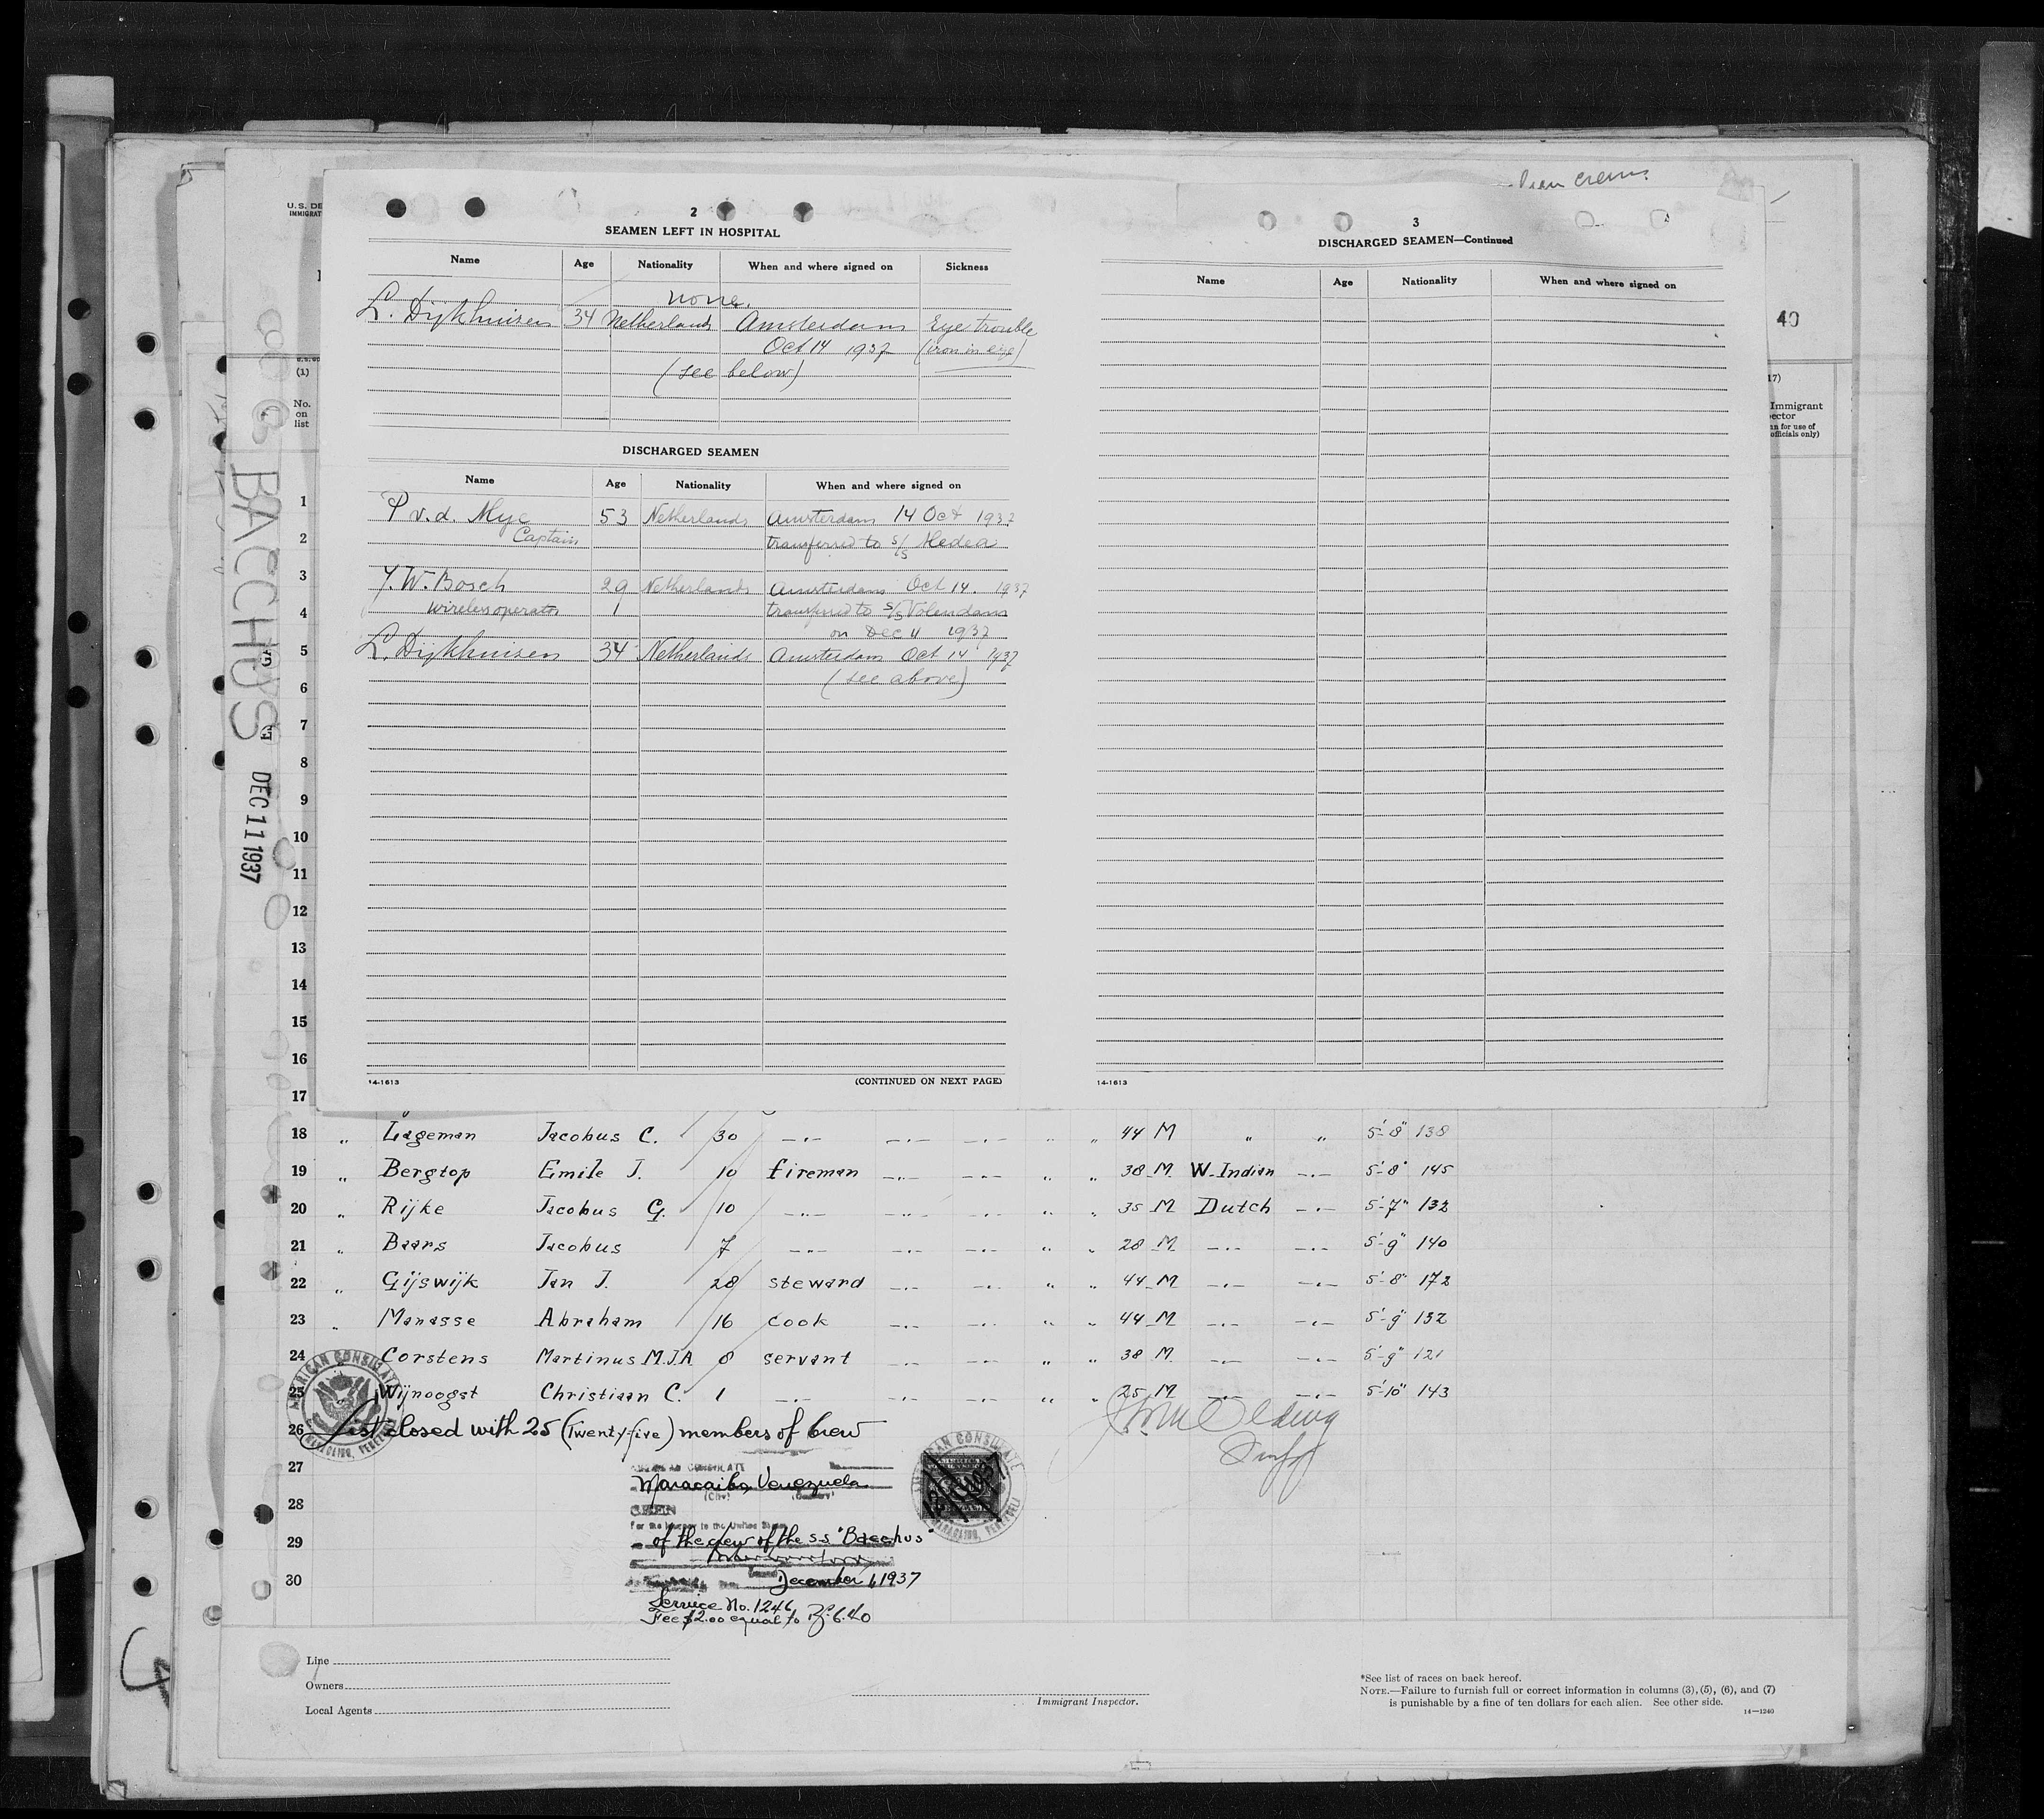 2
SEAMEN LEFT IN HOSPITAL
Name Age Nationality When and where signed on Sickness
none.
L. Dijkhuisen 34 Netherlands Amsterdam Eye trouble
Oct 14 1937 (iron in eye)
(see below)
DISCHARGED SEAMEN
Name Age Nationality When and where signed on
P v.d. Mye 53 Netherlands Amsterdam 14 Oct 1937
Captain transferred to s/s Medea
Y.W. Bosch 29 Netherlands Amsterdam Oct 14. 1937
wireless operator 1 transferred to s/s Volendam
on Dec 11 1937
L. Dijkhuisen 34 Netherlands Amsterdam Oct 14 1937
(see above)
14-1613 (CONTINUED ON NEXT PAGE)
crew.
3
DISCHARGED SEAMEN—Continued
Name Age Nationality When and where signed on
14-1613
U. S. DE
IMMIGRAT
(1)
No.
on
list
40
17)
Immigrant
ector
n for use of
officials only)
BACCHUS
DEC 11 1937
1
2
3
4
5
6
7
8
9
10
11
12
13
14
15
16
17
18 " Lageman Jacobus C. 30 —"— —"— —"— " " 44 M " " 5'-8" 138
19 " Bergtop Emile J. 10 fireman —"— —"— " " 38 M W. Indian —"— 5'-8" 145
20 " Rijke Jacobus G. 10 —"— —"— —"— " " 35 M Dutch —"— 5'-7" 132
21 " Baars Jacobus 7 —"— —"— —"— " " 28 M —"— —"— 5'-9" 140
22 " Gijswijk Jan J. 28 steward —"— —"— " " 44 M —"— —"— 5'-8" 172
23 " Manasse Abraham 16 cook —"— —"— " " 44 M —"— —"— 5'-9" 132
24 Corstens Martinus M.J.A. 8 servant —"— —"— " " 38 M —"— —"— 5'-9" 121
25 Wijnoogst Christiaan C. 1 —"— —"— —"— " " 25 M —"— —"— 5'-10" 143
AMERICAN CONSULATE
MARACAIBO, VENEZUELA
26 List closed with 25 (Twenty-five) members of crew
27
AMERICAN CONSULATE
Maracaibo, Venezuela
(City) (Country)
28
SEEN
For the journey to the United States
29 of the crew of the s.s "Bacchus"
30 December 1, 1937
Service No. 1246
Fee $2.00 equal to Bs. 6.40
AMERICAN CONSULATE
MARACAIBO, VENEZUELA
Line
Owners
Local Agents
Immigrant Inspector.
*See list of races on back hereof.
NOTE.—Failure to furnish full or correct information in columns (3), (5), (6), and (7)
is punishable by a fine of ten dollars for each alien. See other side.
14—1240